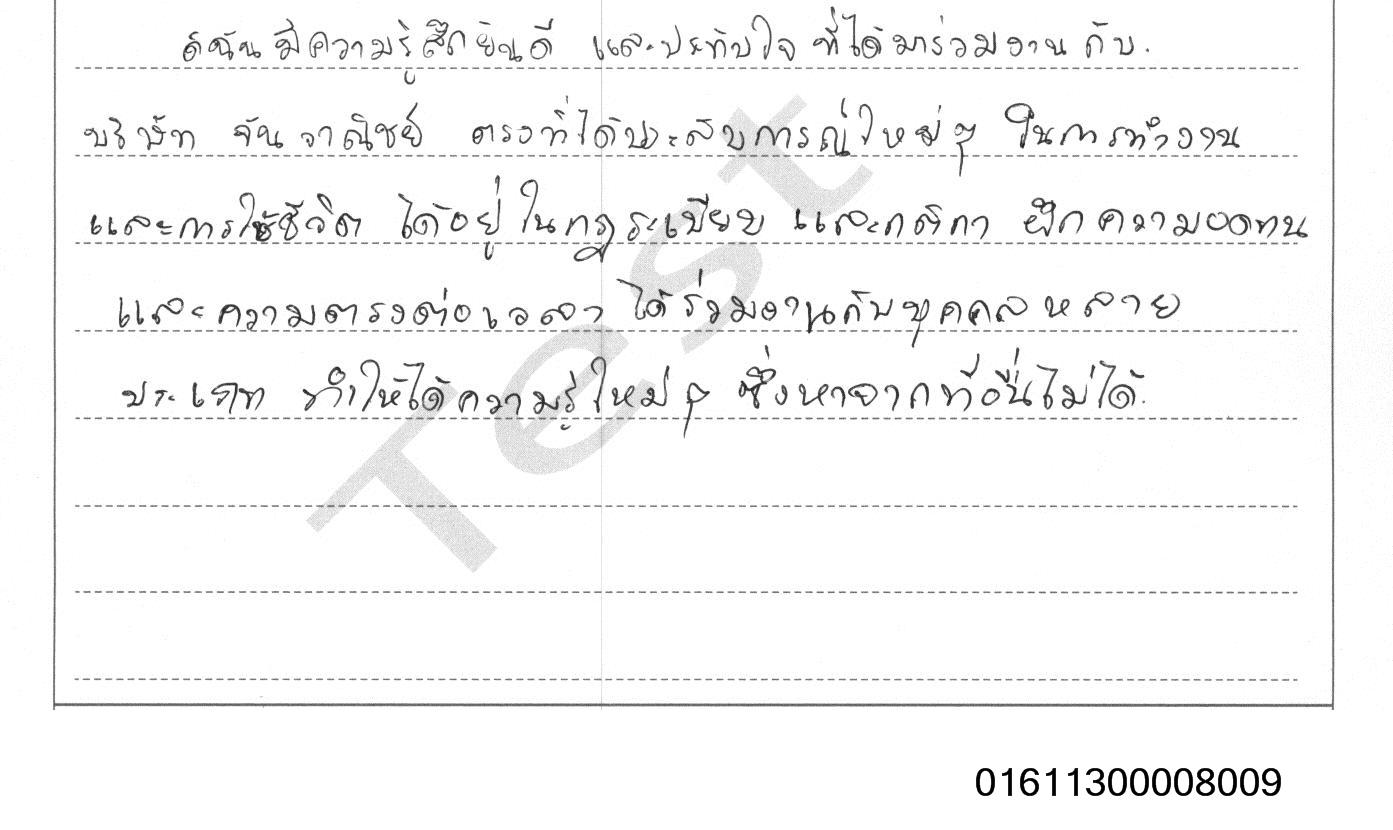 ดิฉันมีความรู้สึกยินดี และประทับใจ ที่ได้มาร่วมงานกับ.
บริษัท จันวาณิชย์ ตรงที่ได้ประสบการณ์ใหม่ๆ ในการทำงาน
และการใช้ชีวิต ได้อยู่ในกฎระเบียบ และกติกา ฝึกความอดทน
และความตรงต่อเวลา ได้ร่วมงานกับบุคคลหลาย
ประเภท ทำให้ได้ความรู้ใหม่ๆ ซึ่งหาจากที่อื่นไม่ได้.
Test
01611300008009